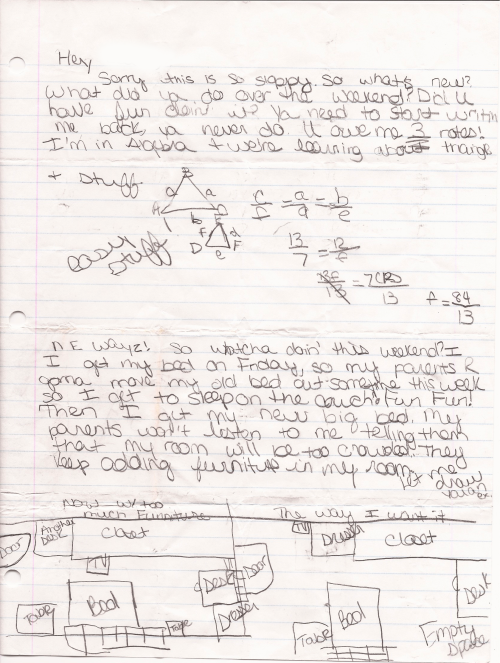 Hey
Sorry this is so sloppy. So what's new?
What did ya do over the weekend? Did U
have fun doin' it? Ya need to start writin
me back, ya never do. U owe me 3 notes!
I'm in Algebra + we're learning about triangle
+ stuff.
B
a a
A b C
c/f = a/d = b/e
easy stuff
f d
D e F
13/7 = 12/f
13f/13 = 7(12)/13
f = 84/13
N E wayz! So whatcha doin' this weekend? I
I get my bed on Friday, so my parents R
gonna move my old bed out sometime this week
so I get to sleep on the couch! Fun Fun!
Then I get my new big bed. My
parents won't listen to me telling them
that my room will be too crowded. They
keep adding furniture in my room. let me
draw
ya an
ex.
Now w/ too
much Furniture
The way I want it
Door
Another
Desk
Closet
TV
Bed
Table
Table
Desk
Door
Dresser
TV
Dresser
Closet
Desk
Bed
Table
Empty
Space